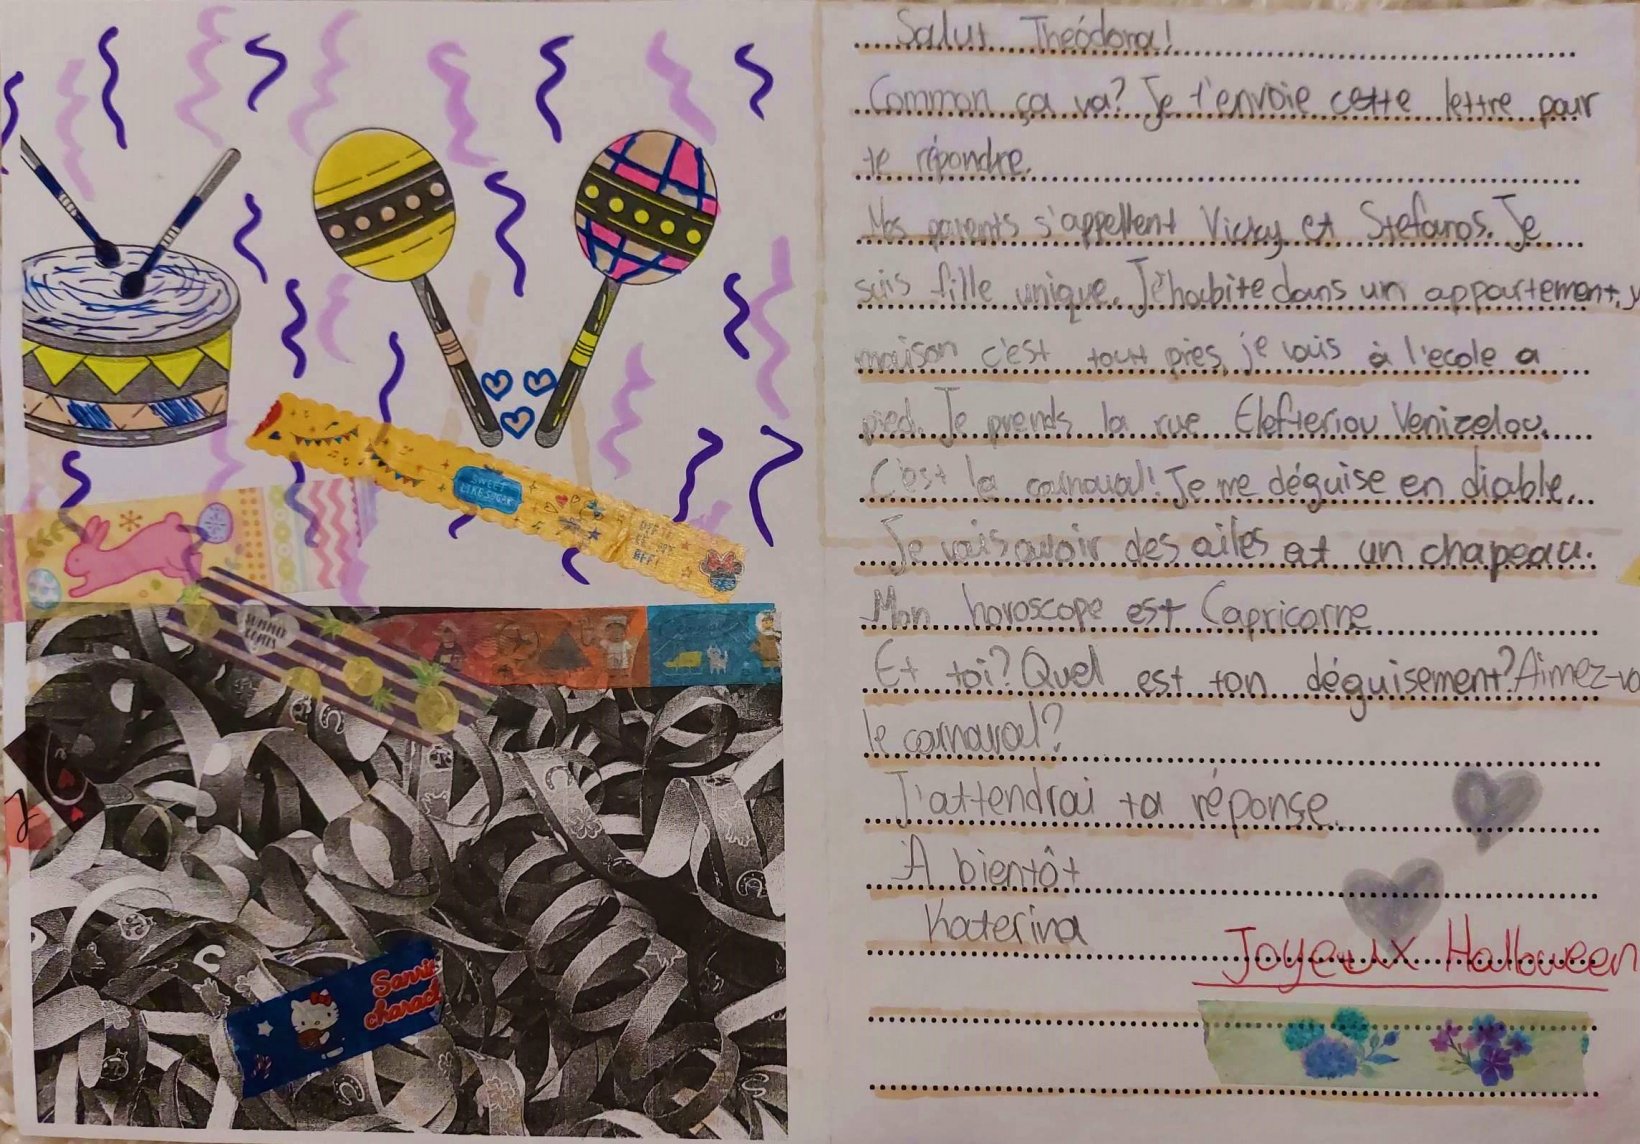 Salut Theódora!
Common ça va? Je t'envoie cette lettre pour
te répondre.
Mes parents s'appellent Vicky et Stefanos. Je
suis fille unique. J'éhabite dans un appartement,
maison c'est tout près, je vais à l'ecole a
pied. Je prends la rue Elefteriou Venizelou.
C'est la carnaval! Je me déguise en diable...
Je vais avoir des ailes et un chapeau.
Mon horoscope est Capricorne
Et toi? Quel est ton déguisement? Aimez-vo
le carnaval?
J'attendrai ta réponse.
A bientôt
Katerina
Joyeux Halloween
SWEET
LIKE SUGAR
BFF!
SUMMER
Sanrio
charact